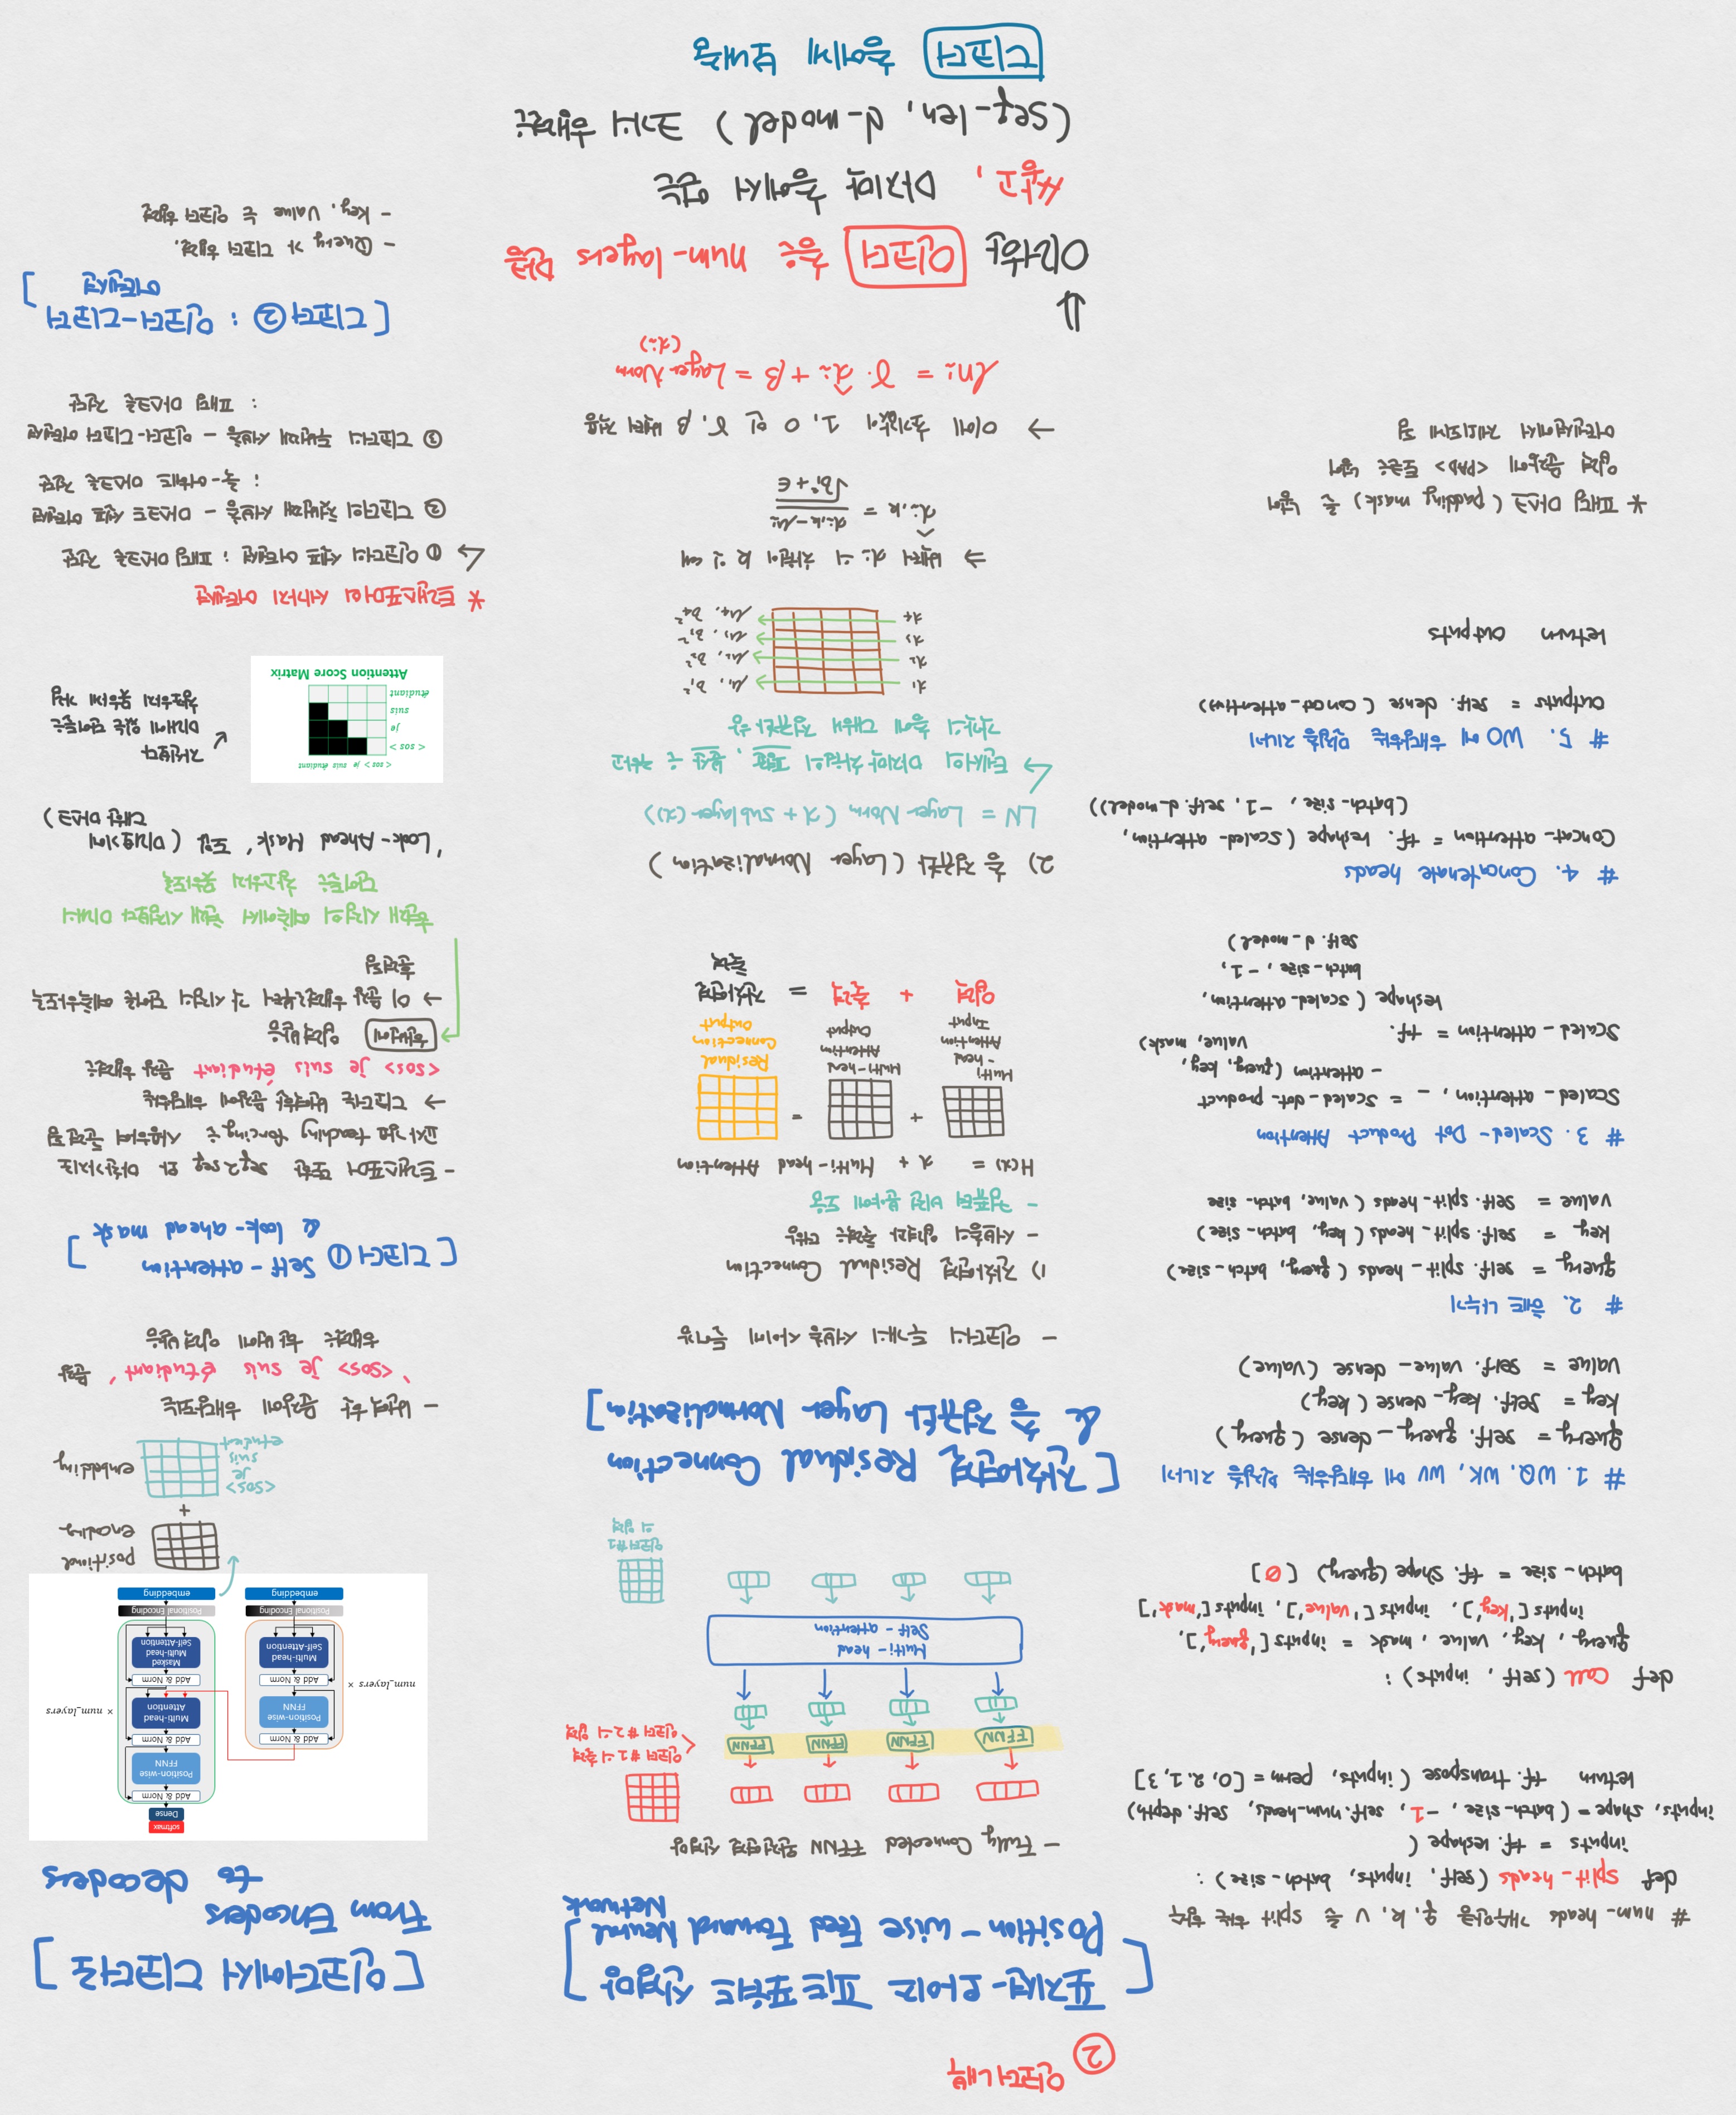 # num_heads 개수만큼 q, k, v 를 split 하는 함수
def split_heads (self, inputs, batch_size) :
inputs = tf. reshape (
inputs, shape = (batch_size, -1, self.num_heads, self.depth)
return tf. transpose (inputs, perm = [0, 2, 1, 3]
def call (self, inputs) :
query, key, value, mask = inputs ['query'],
inputs ['key'], inputs ['value'], inputs ['mask']
batch_size = tf. shape (query) [0]
# 1. WQ, WK, WV 에 해당하는 밀집층 지나기
query = self. query_dense (query)
key = self. key_dense (key)
value = self. value_dense (value)
# 2. 헤드 나누기
query = self. split_heads (query, batch_size)
key = self. split_heads (key, batch_size)
value = self. split_heads (value, batch_size
# 3. Scaled- Dot Product Attention
Scaled_attention, _ = scaled_dot_product
- attention (query, key,
value, mask)
Scaled_attention = tf.
reshape (scaled_attention,
batch_size, -1,
self. d_model)
# 4. Concatenate heads
Concat_attention = tf. reshape (scaled_attention,
(batch_size, -1, self.d_model))
# 5. WO에 해당하는 밀집층 지나기
outputs = self. dense (concat_attention)
return outputs
* 패딩 마스크 (padding mask) 를 넣어
입력 문장에 <PAD> 토큰을 넣어
어텐션에서 제외되게 됨
② 인코더 내부
[ 포지션-와이즈 피드 포워드 신경망
Position-wise Feed Forward Neural ]
Network
- Fully Connected FFNN 완전연결 신경망
FFNN FFNN FFNN FFNN
인코더 #1의 출력
인코더 #2의 입력
Multi-head
Self-attention
인코더 #1
의 입력
[ 잔차연결 Residual Connection
& 층 정규화 Layer Normalization]
- 인코더의 두개의 서브층 사이에 들어감
1) 잔차연결 Residual Connection
- 서브층의 입력과 출력을 더함
- 컴퓨터 비전 분야에 도움
H(x) = x + Multi-head Attention
+ =
Multi
-head
Attention
Input
Multi-head
Attention
Output
Residual
Connection
Output
입력 + 출력 = 잔차연결
출력
2) 층 정규화 (Layer Normalization)
LN = Layer Norm (x + sublayer (x))
↳ 텐서의 마지막 차원의 평균, 분산을 구하고
각각의 층에 대해 정규화 함
x₁ → μ₁, σ₁²
x₂ → μ₂, σ₂²
x₃ → μ₃, σ₃²
x₄ → μ₄, σ₄²
⇒ 벡터 xᵢ 의 차원이 k 일 때
x̂ᵢ,ₖ = (xᵢ,ₖ − μᵢ) / √(σᵢ² + ϵ)
→ 이에 초기값이 1, 0 인 γ, β 벡터 적용
lnᵢ = γ· x̂ᵢ + β = Layer Norm
(xᵢ)
⇓
이러한 인코더 층은 num_layers 만큼
쌓고, 마지막 층에서 얻는
(seq_len, d_model) 크기의 행렬을
디코더 층에게 보내줌
[ 인코더에서 디코더로 ]
From Encoders
to decoders
softmax
Dense
Add & Norm
Position-wise
FFNN
Add & Norm
Multi-head
Attention
Add & Norm
Masked
Multi-head
Self-Attention
Positional Encoding
embedding
× num_layers
num_layers ×
Add & Norm
Position-wise
FFNN
Add & Norm
Multi-head
Self-Attention
Positional Encoding
embedding
positional
encoding
+
<sos>
je
suis
etudient
embedding
- 번역 할 문장에 해당되는
'<sos> je suis étudiant' 문장
행렬을 한 번에 입력 받음
[ 디코더 ① Self-attention
& look-ahead mask ]
- 트랜스포머 또한 seq2seq 와 마찬가지로
교사 강요 teaching forcing을 사용하여 훈련됨
→ 디코더는 번역할 문장에 해당하는
<sos> je suis étudiant 문장 행렬을
한번에 입력받음
→ 이 문장 행렬로부터 각 시점의 단어를 예측하도록
훈련됨
현재 시점의 예측에서 현재 시점보다 미래의
단어들을 참고하지 못하도록
'Look-Ahead Mask' 도입 (미리보기에
대한 마스크)
<sos> je suis étudiant
<sos>
je
suis
étudiant
Attention Score Matrix
자신보다
미래에 있는 단어들은
참조하지 못하게 가림
* 트랜스포머의 세가지 어텐션
↳ ① 인코더의 셀프 어텐션 : 패딩 마스크를 전달
② 디코더의 첫번째 서브층 - 마스크드 셀프 어텐션
: 룩-어헤드 마스크를 전달
③ 디코더의 두번째 서브층 - 인코더-디코더 어텐션
: 패딩 마스크를 전달
[ 디코더 ② : 인코더-디코더
어텐션 ]
- Query 가 디코더 행렬,
- key, Value 는 인코더 행렬